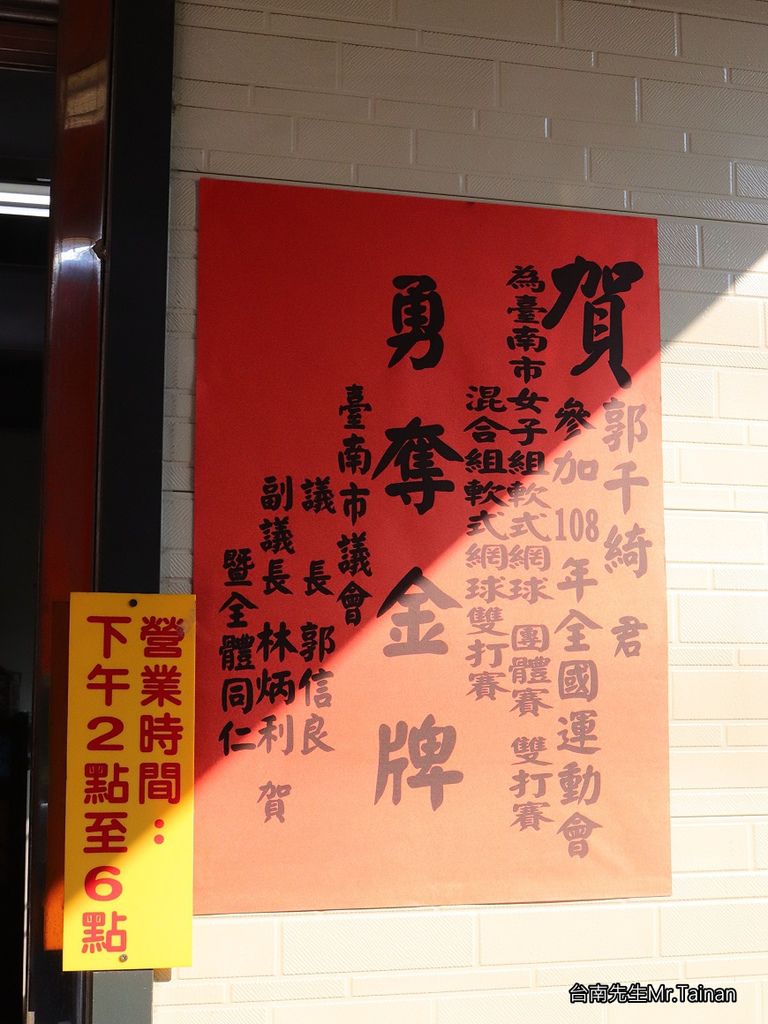 賀
郭千綺 君
參加108年全國運動會
為臺南市女子組軟式網球 團體賽 雙打賽
混合組軟式網球雙打賽
勇奪金牌
臺南市議會
議長 郭信良
副議長 林炳利 賀
暨全體同仁
營業時間：
下午2點至6點
台南先生Mr.Tainan